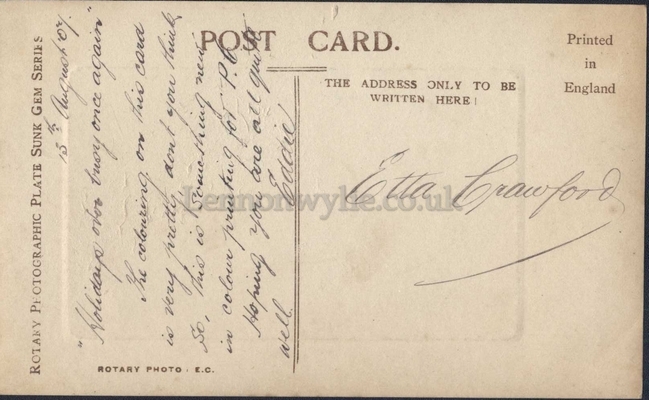 ROTARY PHOTOGRAPHIC PLATE SUNK GEM SERIES
POST CARD.
Printed
in
England
THE ADDRESS ONLY TO BE
WRITTEN HERE!
15th August 07.
"Holidays over busy once again"
The colouring on this card
is very pretty, don't you think
so, this is something new
in colour printing for P.C.
Hoping you are all quite
well. Eddie
Etta Crawford
Lennonwylie.co.uk
ROTARY PHOTO. E.C.